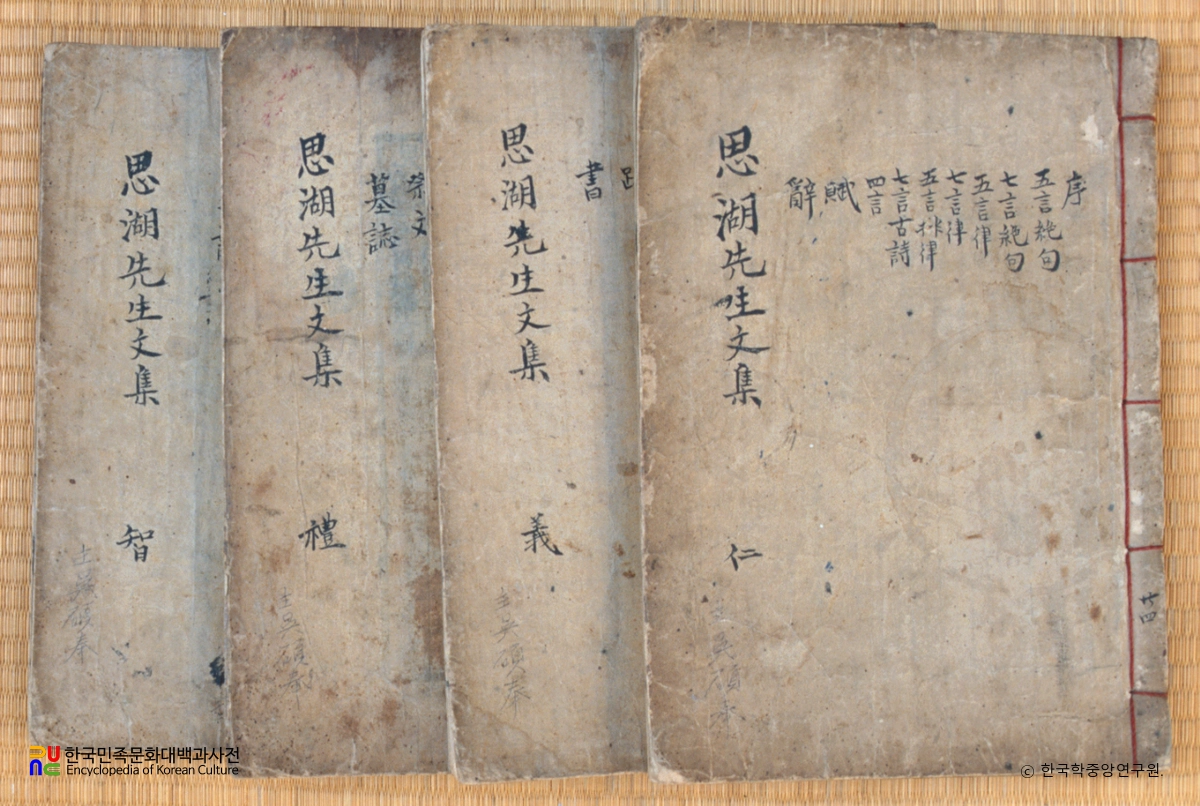 序
五言絶句
七言絶句
五言律
七言律
五言排律
七言古詩
四言
賦
辭
思湖先生文集
仁
卄四
書
思湖先生文集
義
祭文
墓誌
思湖先生文集
禮
思湖先生文集
智
한국민족문화대백과사전
Encyclopedia of Korean Culture
© 한국학중앙연구원.